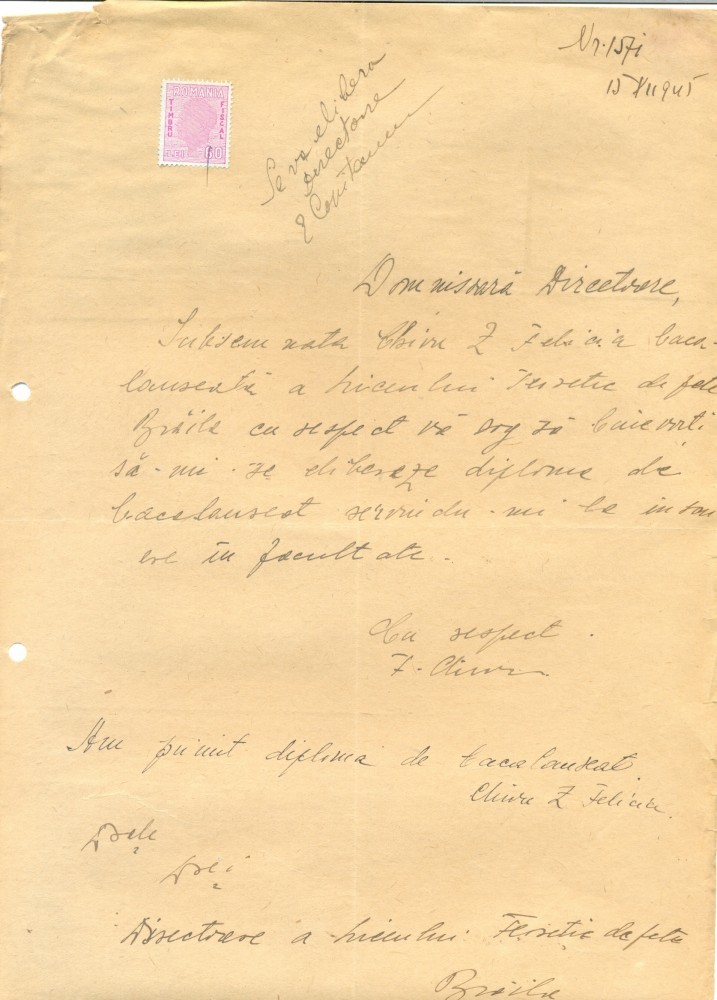 Nr. 1571
15 XII 945
ROMANIA
TIMBRU
FISCAL
LEI 60
Se va elibera
Directoare
Domnisoară Directoare,
Subsemnata Chivu Z Felicia baca-
laureată a liceului Teoretic de fete
Brăila cu respect vă rog să binevoiti
să-mi se elibereze diploma de
bacalaureat servindu-mi la inscri
ere în facultate.
Cu respect.
F. Chivu
Am primit diploma de bacalaureat
Chivu Z Felicia.
Dsale
Drei
Directoare a liceului Teoretic de fete
Brăila